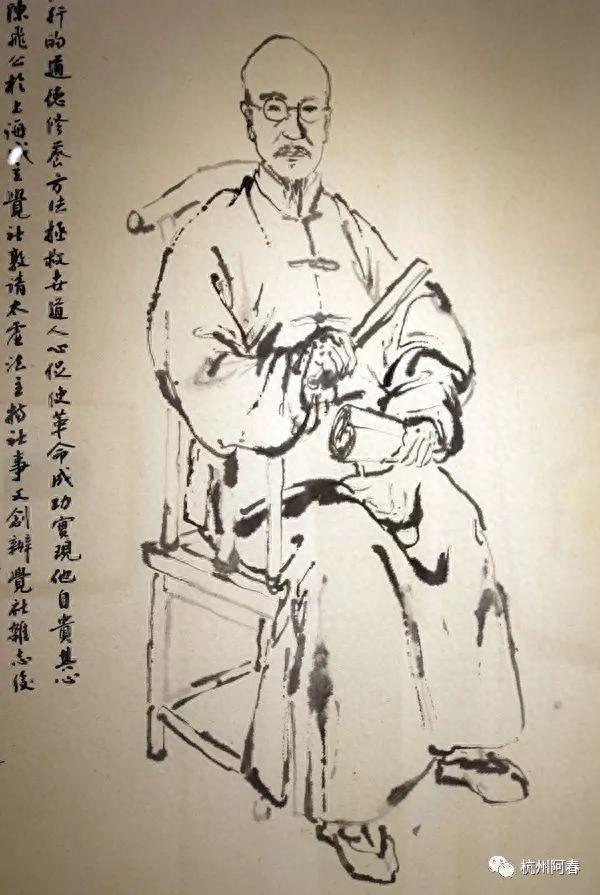 行的道德修養方法拯救世道人心促使革命成功實現他自貴其心
陳飛公於上海成立覺社敦請太虛法主持社事又創辦覺社雜志後
杭州阿春